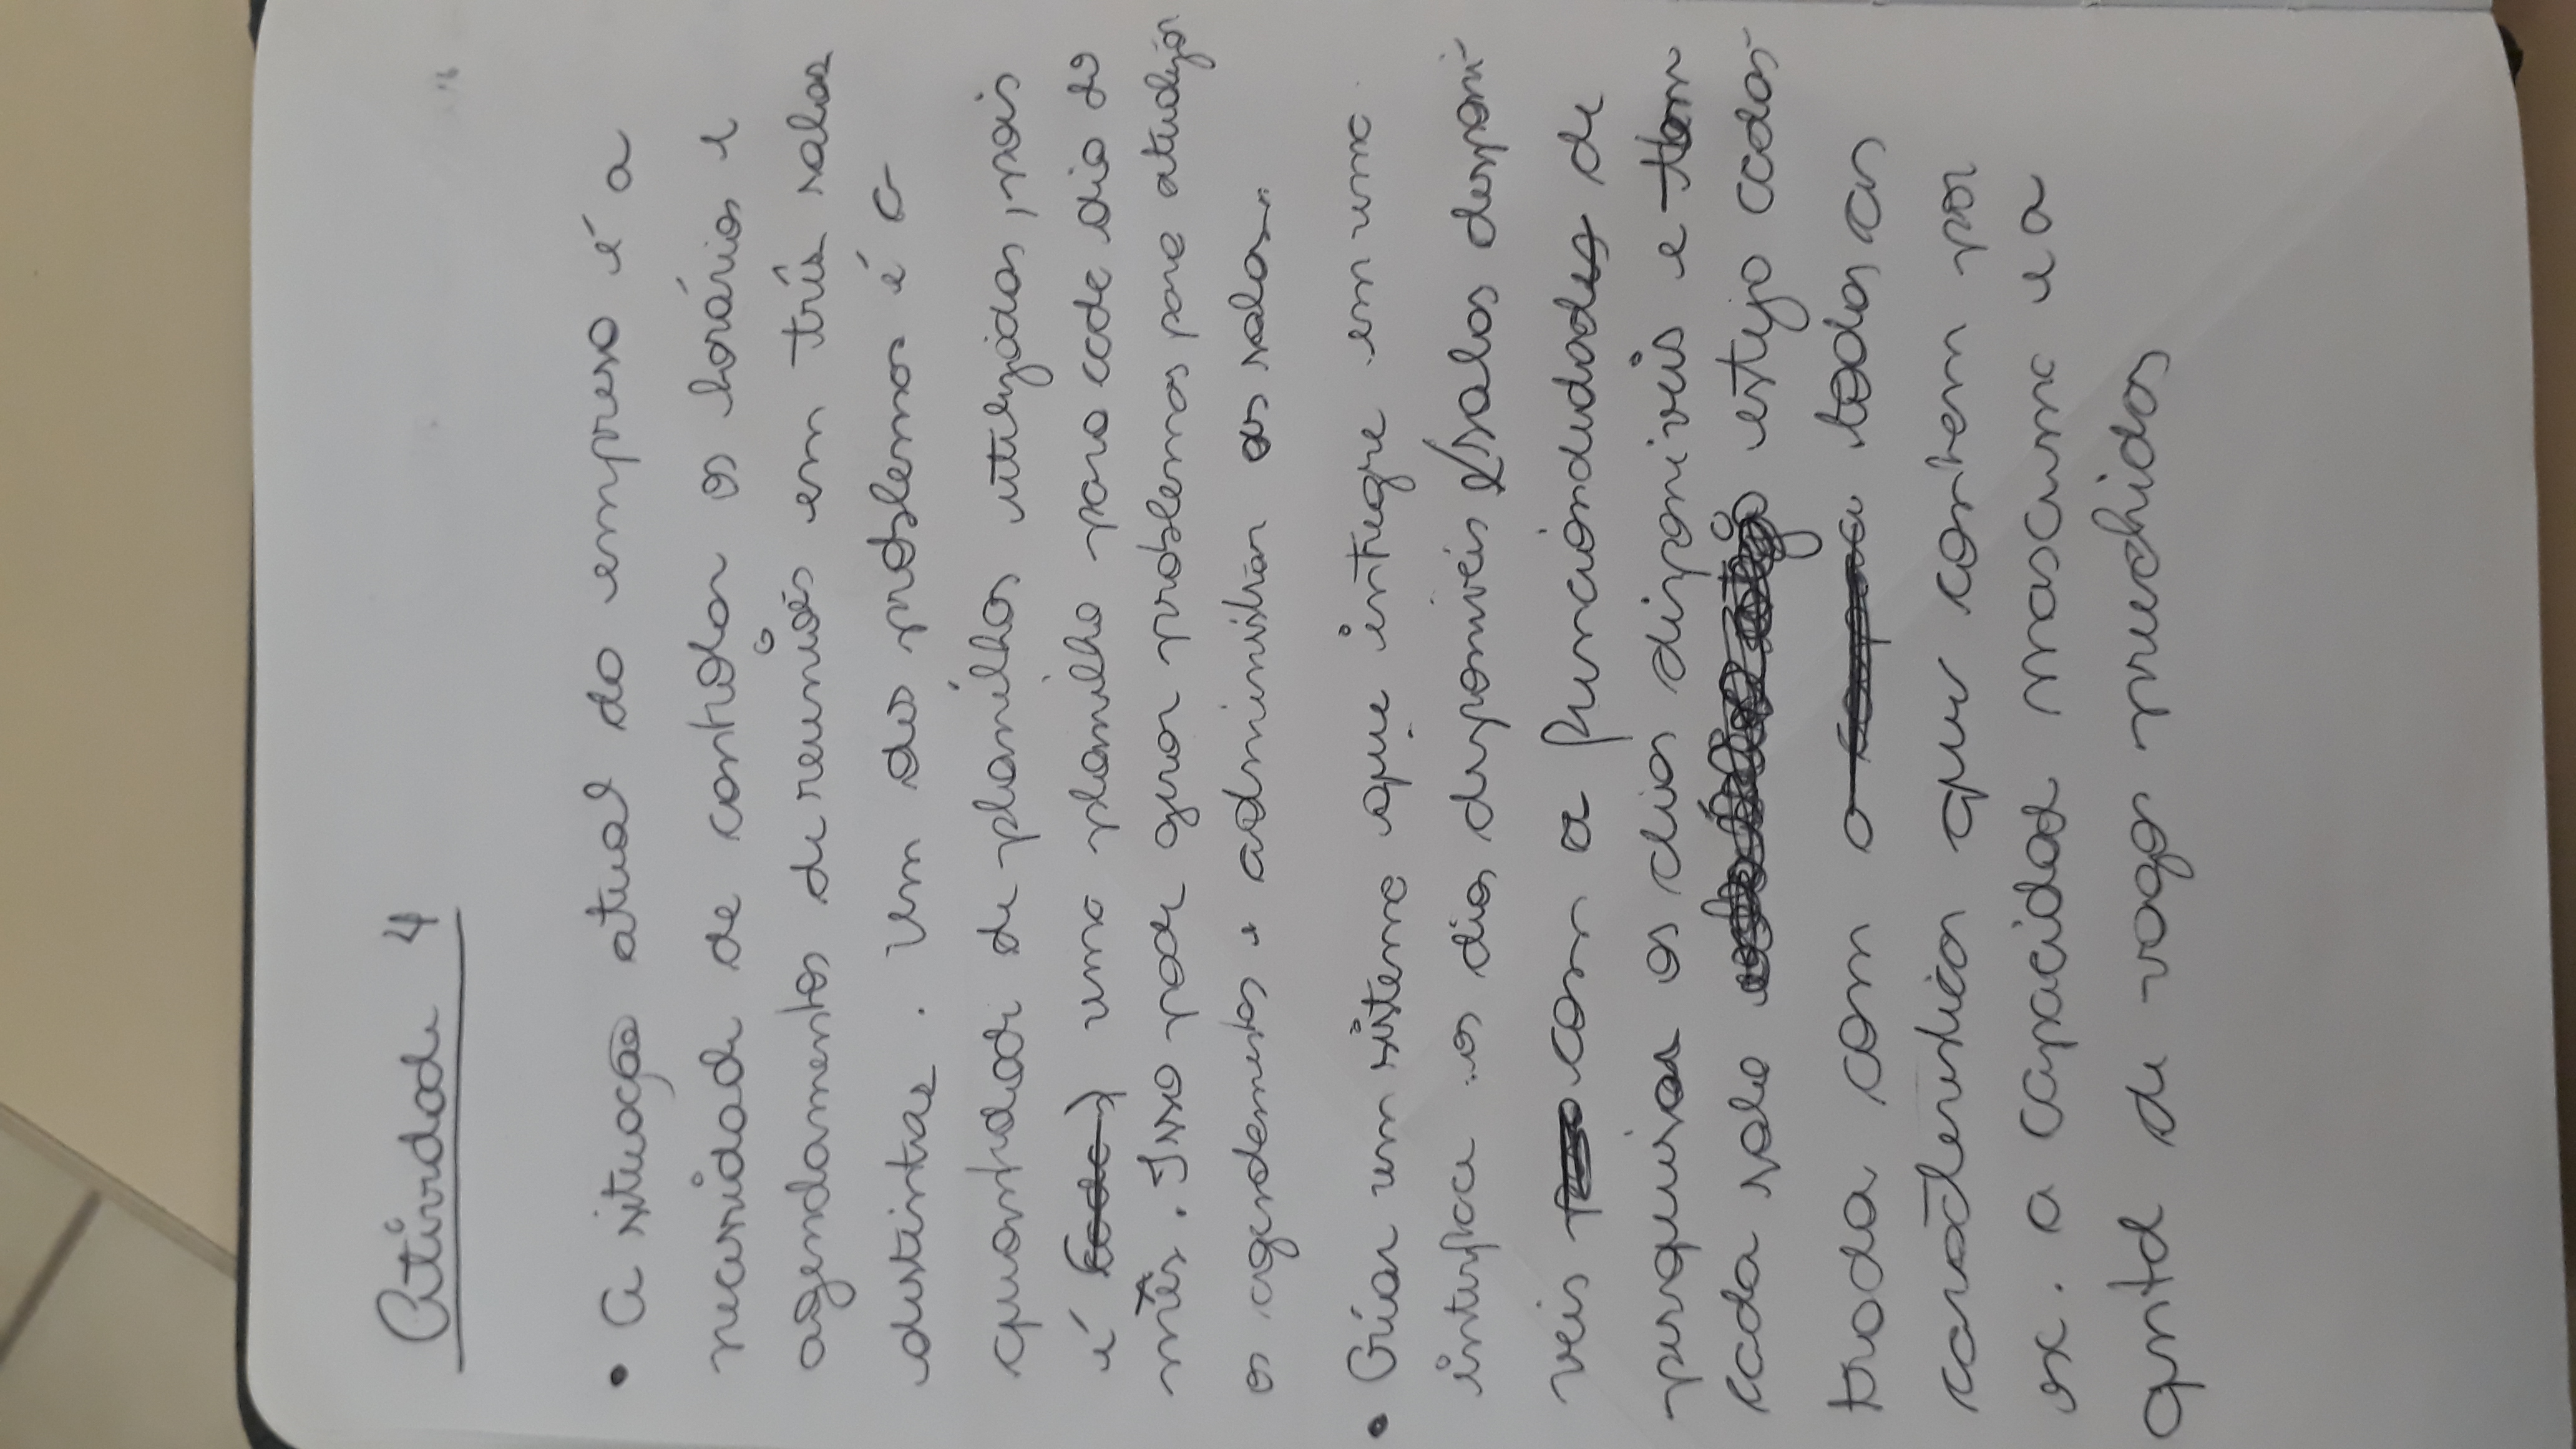 Atividade 4
• A situação atual da empresa é a
necessidade de controlar os horários e
agendamentos de reuniões em três salas
distintas. Um dos problemas é a
quantidade de planilhas utilizadas, pois
é uma planilha para cada dia do
mês. Isso pode gerar problemas para atualizar
os agendamentos e administrar as salas.
• Criar um sistema que integre em uma
interface os dias disponíveis e salas disponí-
veis com a funcionalidade de
pesquisar os dias disponiveis e
cada sala esteja cadas-
trada com todas as
caracteristicas que contem por
ex. a capacidade maxima e a
qntd de vagas preechidas